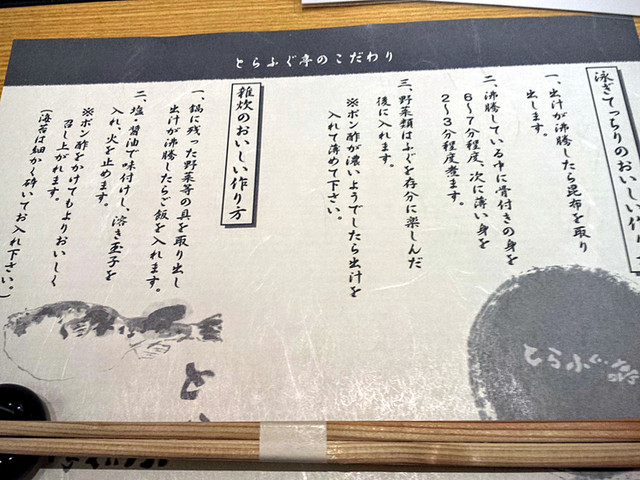 とらふぐ亭のこだわり
泳ぎてっちりのおいしい作り
一、出汁が沸騰したら昆布を取り
出します。
二、沸騰している中に骨付きの身を
6〜7分程度、次に薄い身を
2〜3分程度煮ます。
三、野菜類はふぐを存分に楽しんだ
後に入れます。
※ポン酢が濃いようでしたら出汁を
入れて薄めて下さい。
雑炊のおいしい作り方
一、鍋に残った野菜等の具を取り出し
出汁が沸騰したらご飯を入れます。
二、塩・醤油で味付けし、溶き玉子を
入れ、火を止めます。
※ポン酢をかけてもよりおいしく
召し上がれます。
(海苔は細かく砕いてお入れ下さい。)
とらふぐ亭
とら